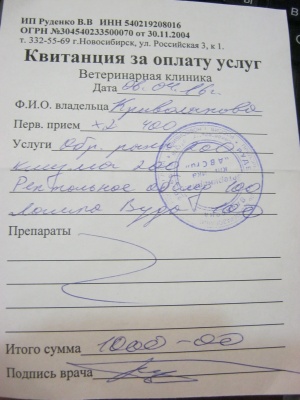 ИП Руденко В.В ИНН 540219208016
ОГРН №304540233500070 от 30.11.2004
т. 332-55-69 г.Новосибирск, ул. Российская 3, к 1.
Квитанция за оплату услуг
Ветеринарная клиника
Дата 06.04.16г.
Ф.И.О. владельца
Перв. прием х2 400
Услуги обр. раны 100
клизма 200
100
Лампа Вуда 100
Препараты
Итого сумма 1000-00
Подпись врача